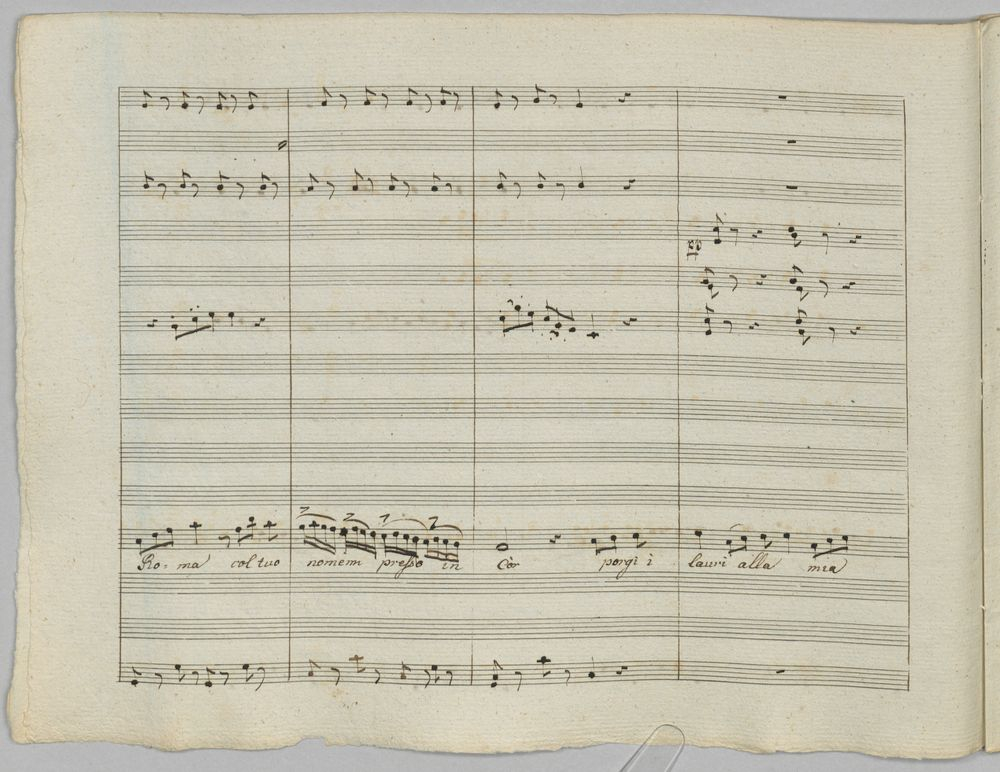 Ro=ma col tuo nomem presso in Còr porgi i lauri alla mia